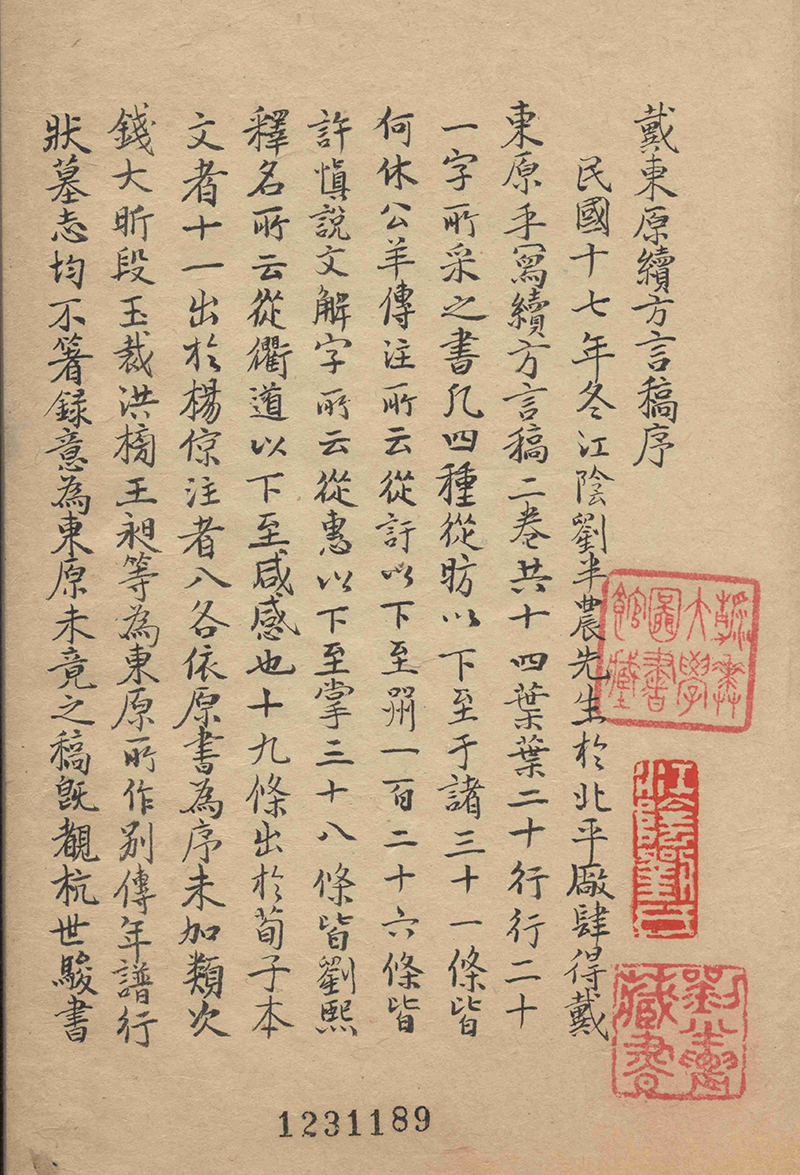 戴東原續方言稿序
民國十七年冬江陰劉半農先生於北平廠肆得戴
東原手寫續方言稿二卷共十四葉葉二十行行二十
一字所采之書凡四種從昉以下至于諸三十一條皆
何休公羊傳注所云從訏以下至朔一百二十六條皆
許慎說文解字所云從憲以下至掌三十八條皆劉熙
釋名所云從衢道以下至咸感也十九條出於荀子本
文者十一出於楊倞注者八各依原書為序未加類次
錢大昕段玉裁洪榜王昶等為東原所作別傳年譜行
狀墓志均不箸錄意為東原未竟之稿旣覩杭世駿書
大學圖書館藏
劉半農藏書
1231189